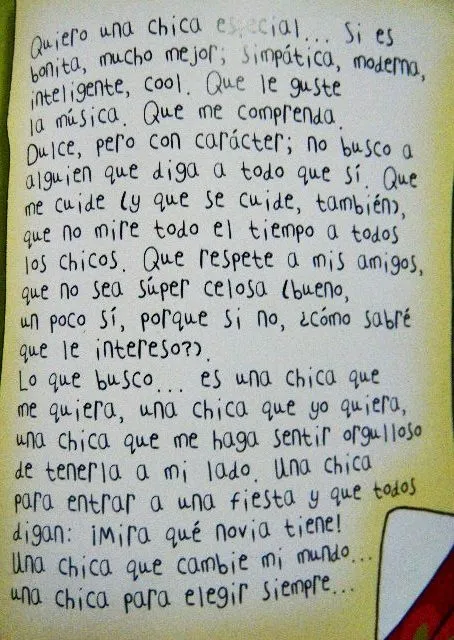 Quiero una chica especial... Si es
bonita, mucho mejor; simpática, moderna,
inteligente, cool. Que le guste
la música. Que me comprenda.
Dulce, pero con carácter; no busco a
alguien que diga a todo que sí. Que
me cuide (y que se cuide, también),
que no mire todo el tiempo a todos
los chicos. Que respete a mis amigos,
que no sea súper celosa (bueno,
un poco sí, porque si no, ¿cómo sabré
que le intereso?).
Lo que busco... es una chica que
me quiera, una chica que yo quiera,
una chica que me haga sentir orgulloso
de tenerla a mi lado. Una chica
para entrar a una fiesta y que todos
digan: ¡Mira qué novia tiene!
Una chica que cambie mi mundo...
una chica para elegir siempre...